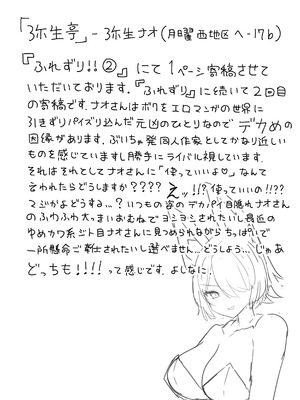 「弥生亭」- 弥生ナオ(月曜西地区 へ-17b)
『ふれずり!!②』にて1ページ寄稿させて
いただいております.『ふれずり』に続いて2回目
の寄稿です.ナオさんはボクをエロマンガの世界に
引きずりパイズリ込んだ元凶のひとりなのでデカめの
因縁があります.ぶいちゅ発同人作家としてかなり近しい
ものを感じていますし勝手にライバル視しています.
それはそれとしてナオさんに「使っていいよ♡」なんて
言われたらどうしますか????えッ!!?使っていいの!!??
マジかよどうするっ...?いつもの姿のデカパイ目隠れナオさん
のふわふわ大っきいおむねでヨシヨシされたいし最近の
ゆめカワ系ジト目ナオさんに見つめられながらちっぱいで
一所懸命ご奉仕されたいし選べません...どうしよう...じゃあ
どっちも!!!!って感じです.よしなに!